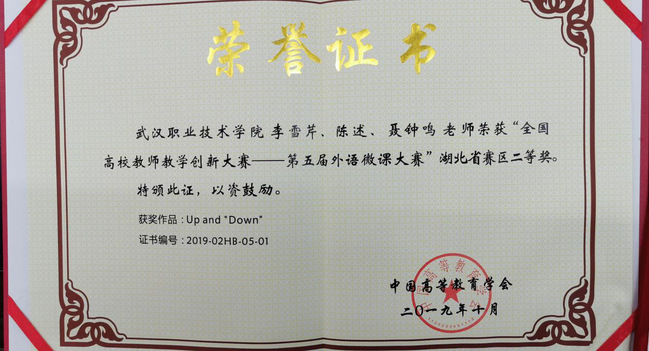 荣誉证书
武汉职业技术学院 李雪芹、陈述、聂钟鸣 老师荣获“全国
高校教师教学创新大赛——第五届外语微课大赛”湖北省赛区二等奖。
特颁此证，以资鼓励。
获奖作品：Up and "Down"
证书编号：2019-02HB-05-01
中国高等教育学会
二〇一九年十月